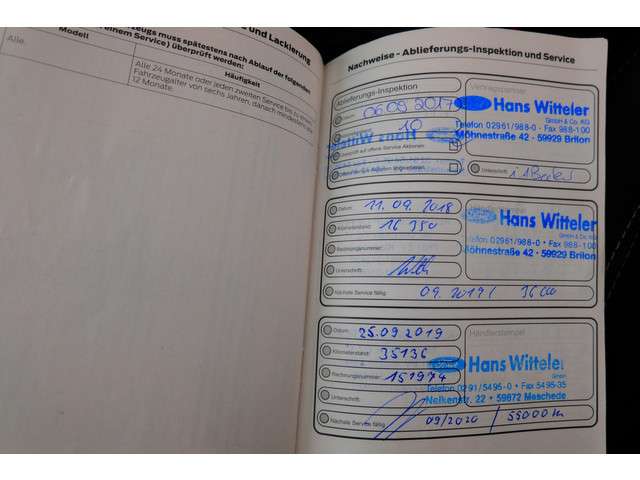 und Lackierung
zeugs muss spätestens nach Ablauf der folgenden
einem Service) überprüft werden:
Modell
Häufigkeit
Alle
Alle 24 Monate oder jeden zweiten Service bis zu einem
Fahrzeugalter von sechs Jahren, danach mindestens alle
12 Monate.
Nachweise - Ablieferungs-Inspektion und Service
Ablieferungs-Inspektion
Vertragspartner
Datum: 06.09.2017
10
Hans Witteler
GmbH & Co. KG
Telefon 02961/988-0 · Fax 988-100
Möhnestraße 42 · 59929 Brilon
auf offene Service Aktionen:
Unterschrift:
Datum: 11.09.2018
Kilometerstand: 16 350
Rechnungsnummer:
Unterschrift:
Nächste Service fällig: 09.2019 /
Hans Witteler
GmbH & Co. KG
Telefon 02961/988-0 · Fax 988-100
Möhnestraße 42 · 59929 Brilon
Datum: 25.09.2019
Kilometerstand: 35136
Rechnungsnummer: 151974
Unterschrift:
Nächste Service fällig: 09/2020 / 55000 km
Händlerstempel
Hans Witteler
GmbH
Telefon 0291/5495-0 · Fax 5495-35
Nelkenstr. 22 · 59872 Meschede